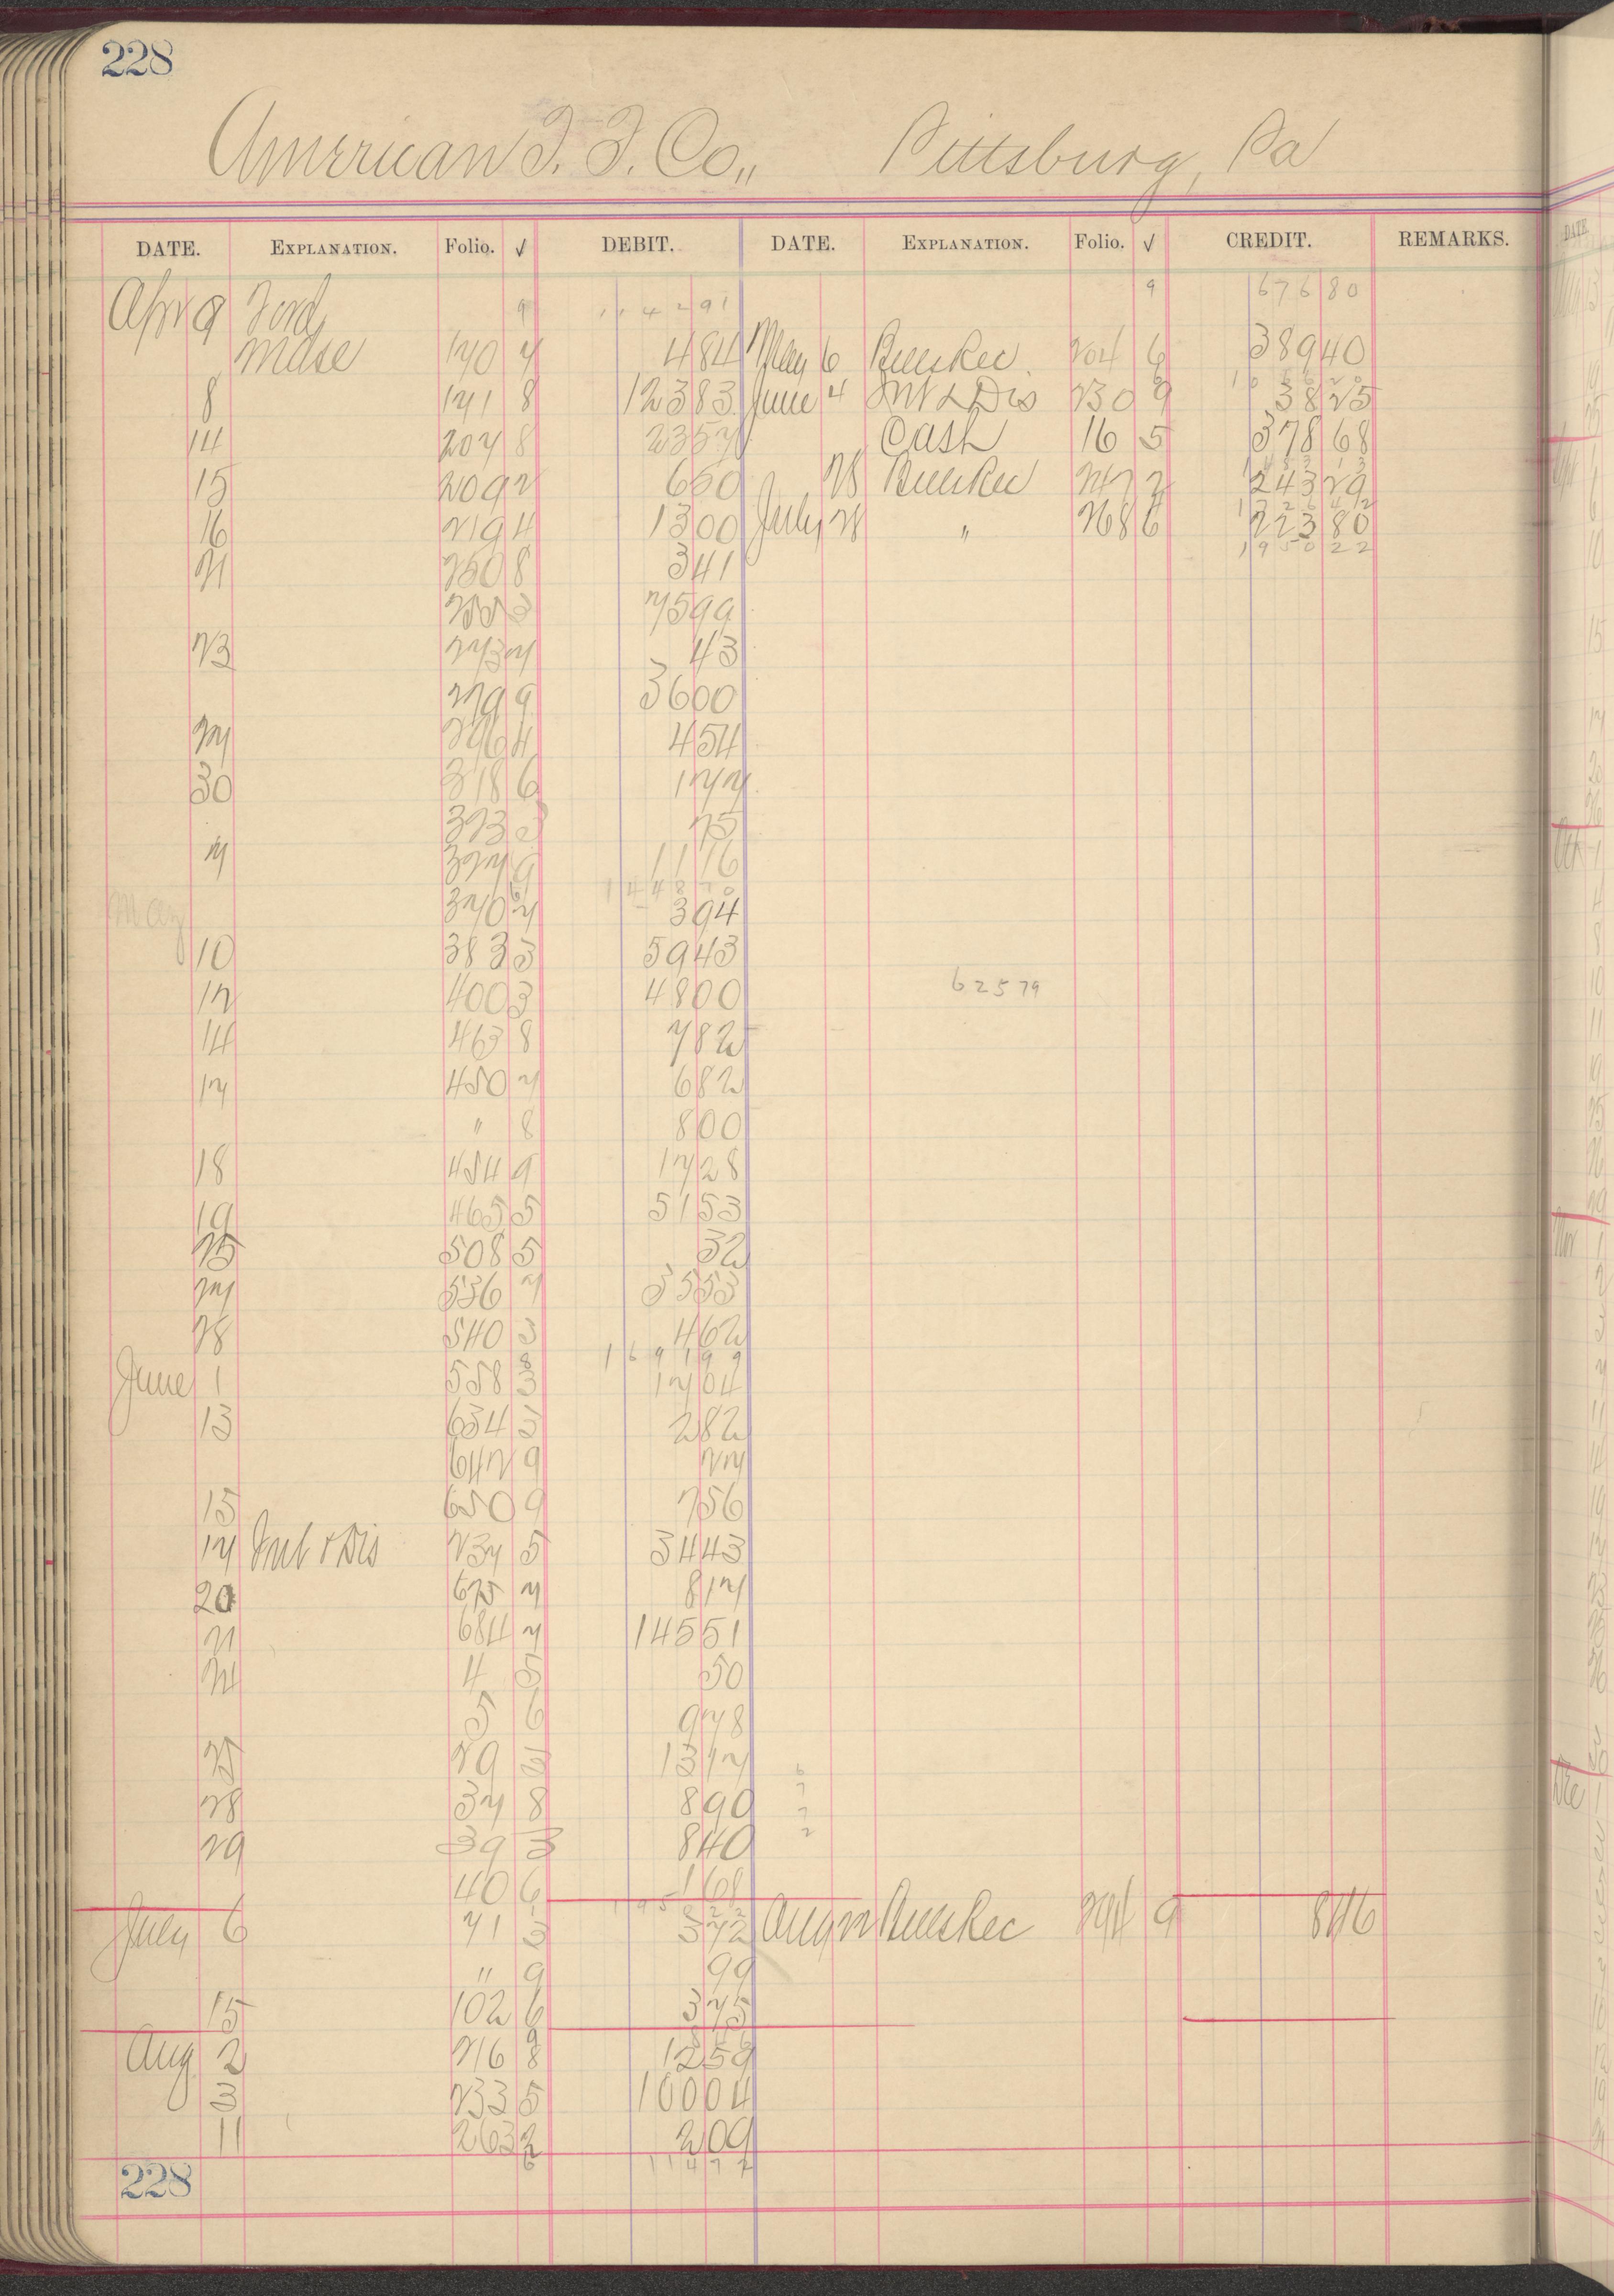 228
American T. T. Co., Pittsburg, Pa
DATE. EXPLANATION. Folio. √ DEBIT. DATE. EXPLANATION. Folio. √ CREDIT. REMARKS.
Apr 9 Ford 9 1142 91 9 676 80
Mdse 170 7 4 84 May 6 Bills Rec. 204 6 389 40
8 171 8 123 83 June 4 Int & Dis 230 9 38 25
14 207 8 23 57 Cash 16 5 378 68
15 209 2 6 50 28 Bills Rec 247 2 243 29
16 219 4 13 00 July 28 " 268 6 223 80
1950 22
21 250 8 3 41
75 99
23 273 7 43
279 9 36 00
27 296 4 4 54
30 318 6 1 77
323 25
327 9 11 16
May 370 7 3 94
10 383 3 59 43
12 400 3 48 00 625 79
14 463 8 7 82
17 450 7 6 82
" 8 8 00
18 454 9 17 28
19 465 5 51 53
25 508 5 32
27 536 7 35 53
28 540 3 4 62
1691 99
June 1 558 3 17 04
13 634 3 2 82
642 9 27
15 650 9 7 56
17 Int & Dis 237 5 34 43
20 675 7 8 17
21 684 7 145 51
24 4 5 50
5 6 9 78
25 29 3 13 17
28 37 8 8 90
29 39 3 8 40
40 6 1 68
July 6 71 3 3 72 Aug 22 Bills Rec 294 9 8 46
" 9 99
15 102 6 3 75
Aug 2 216 8 12 59
3 233 5 100 04
11 263 2 2 09
228